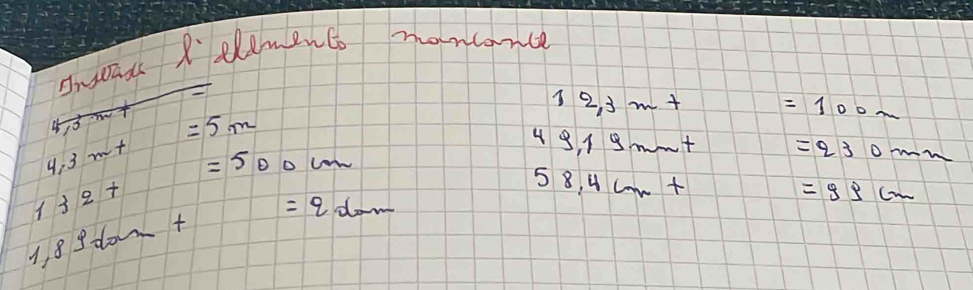 Inserisci l'elemento mancante
4,3 m + =
4,3 m + = 5 m
132 + = 500 cm
1,89 dam + = 2 dam
12,3 m + = 100 m
49,19 mm + = 230 mm
58,4 cm + = 99 cm